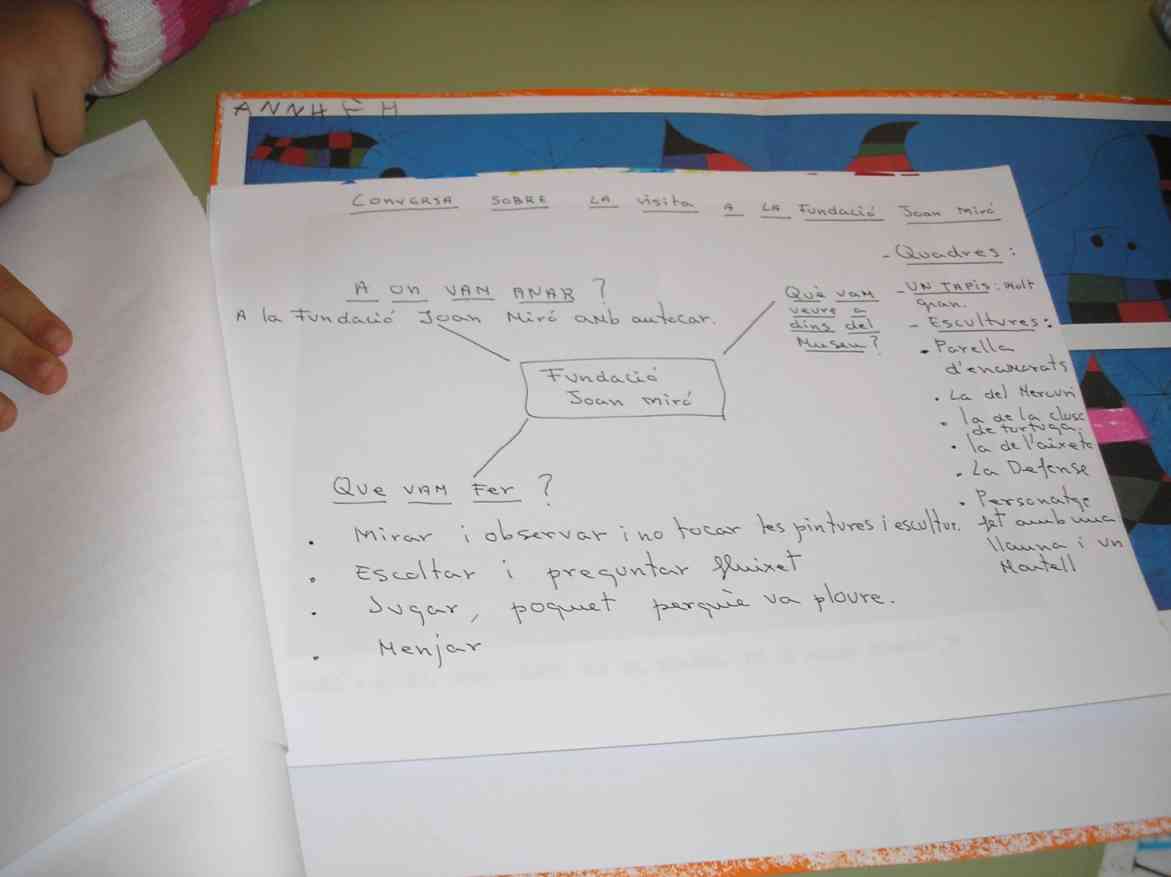 ANNHÈM
CONVERSA SOBRE LA visita A LA Fundació Joan Miró
A ON VAM ANAR ?
A la Fundació Joan Miró amb autocar.
Fundació
Joan Miró
Què vam
veure a
dins del
Museu?
- Quadres :
- UN TAPIS : Molt
gran.
- Escultures :
• Parella
d'enamorats
• La del Mercuri
• la de la closc
de tortuga.
• la de l'aixeta
• La Defense
• Personatge
fet amb una
llauna i un
Martell
Que VAM Fer ?
• Mirar i observar i no tocar les pintures i escultur.
• Escoltar i preguntar fluixet
• Jugar, poquet perquè va ploure.
• Menjar